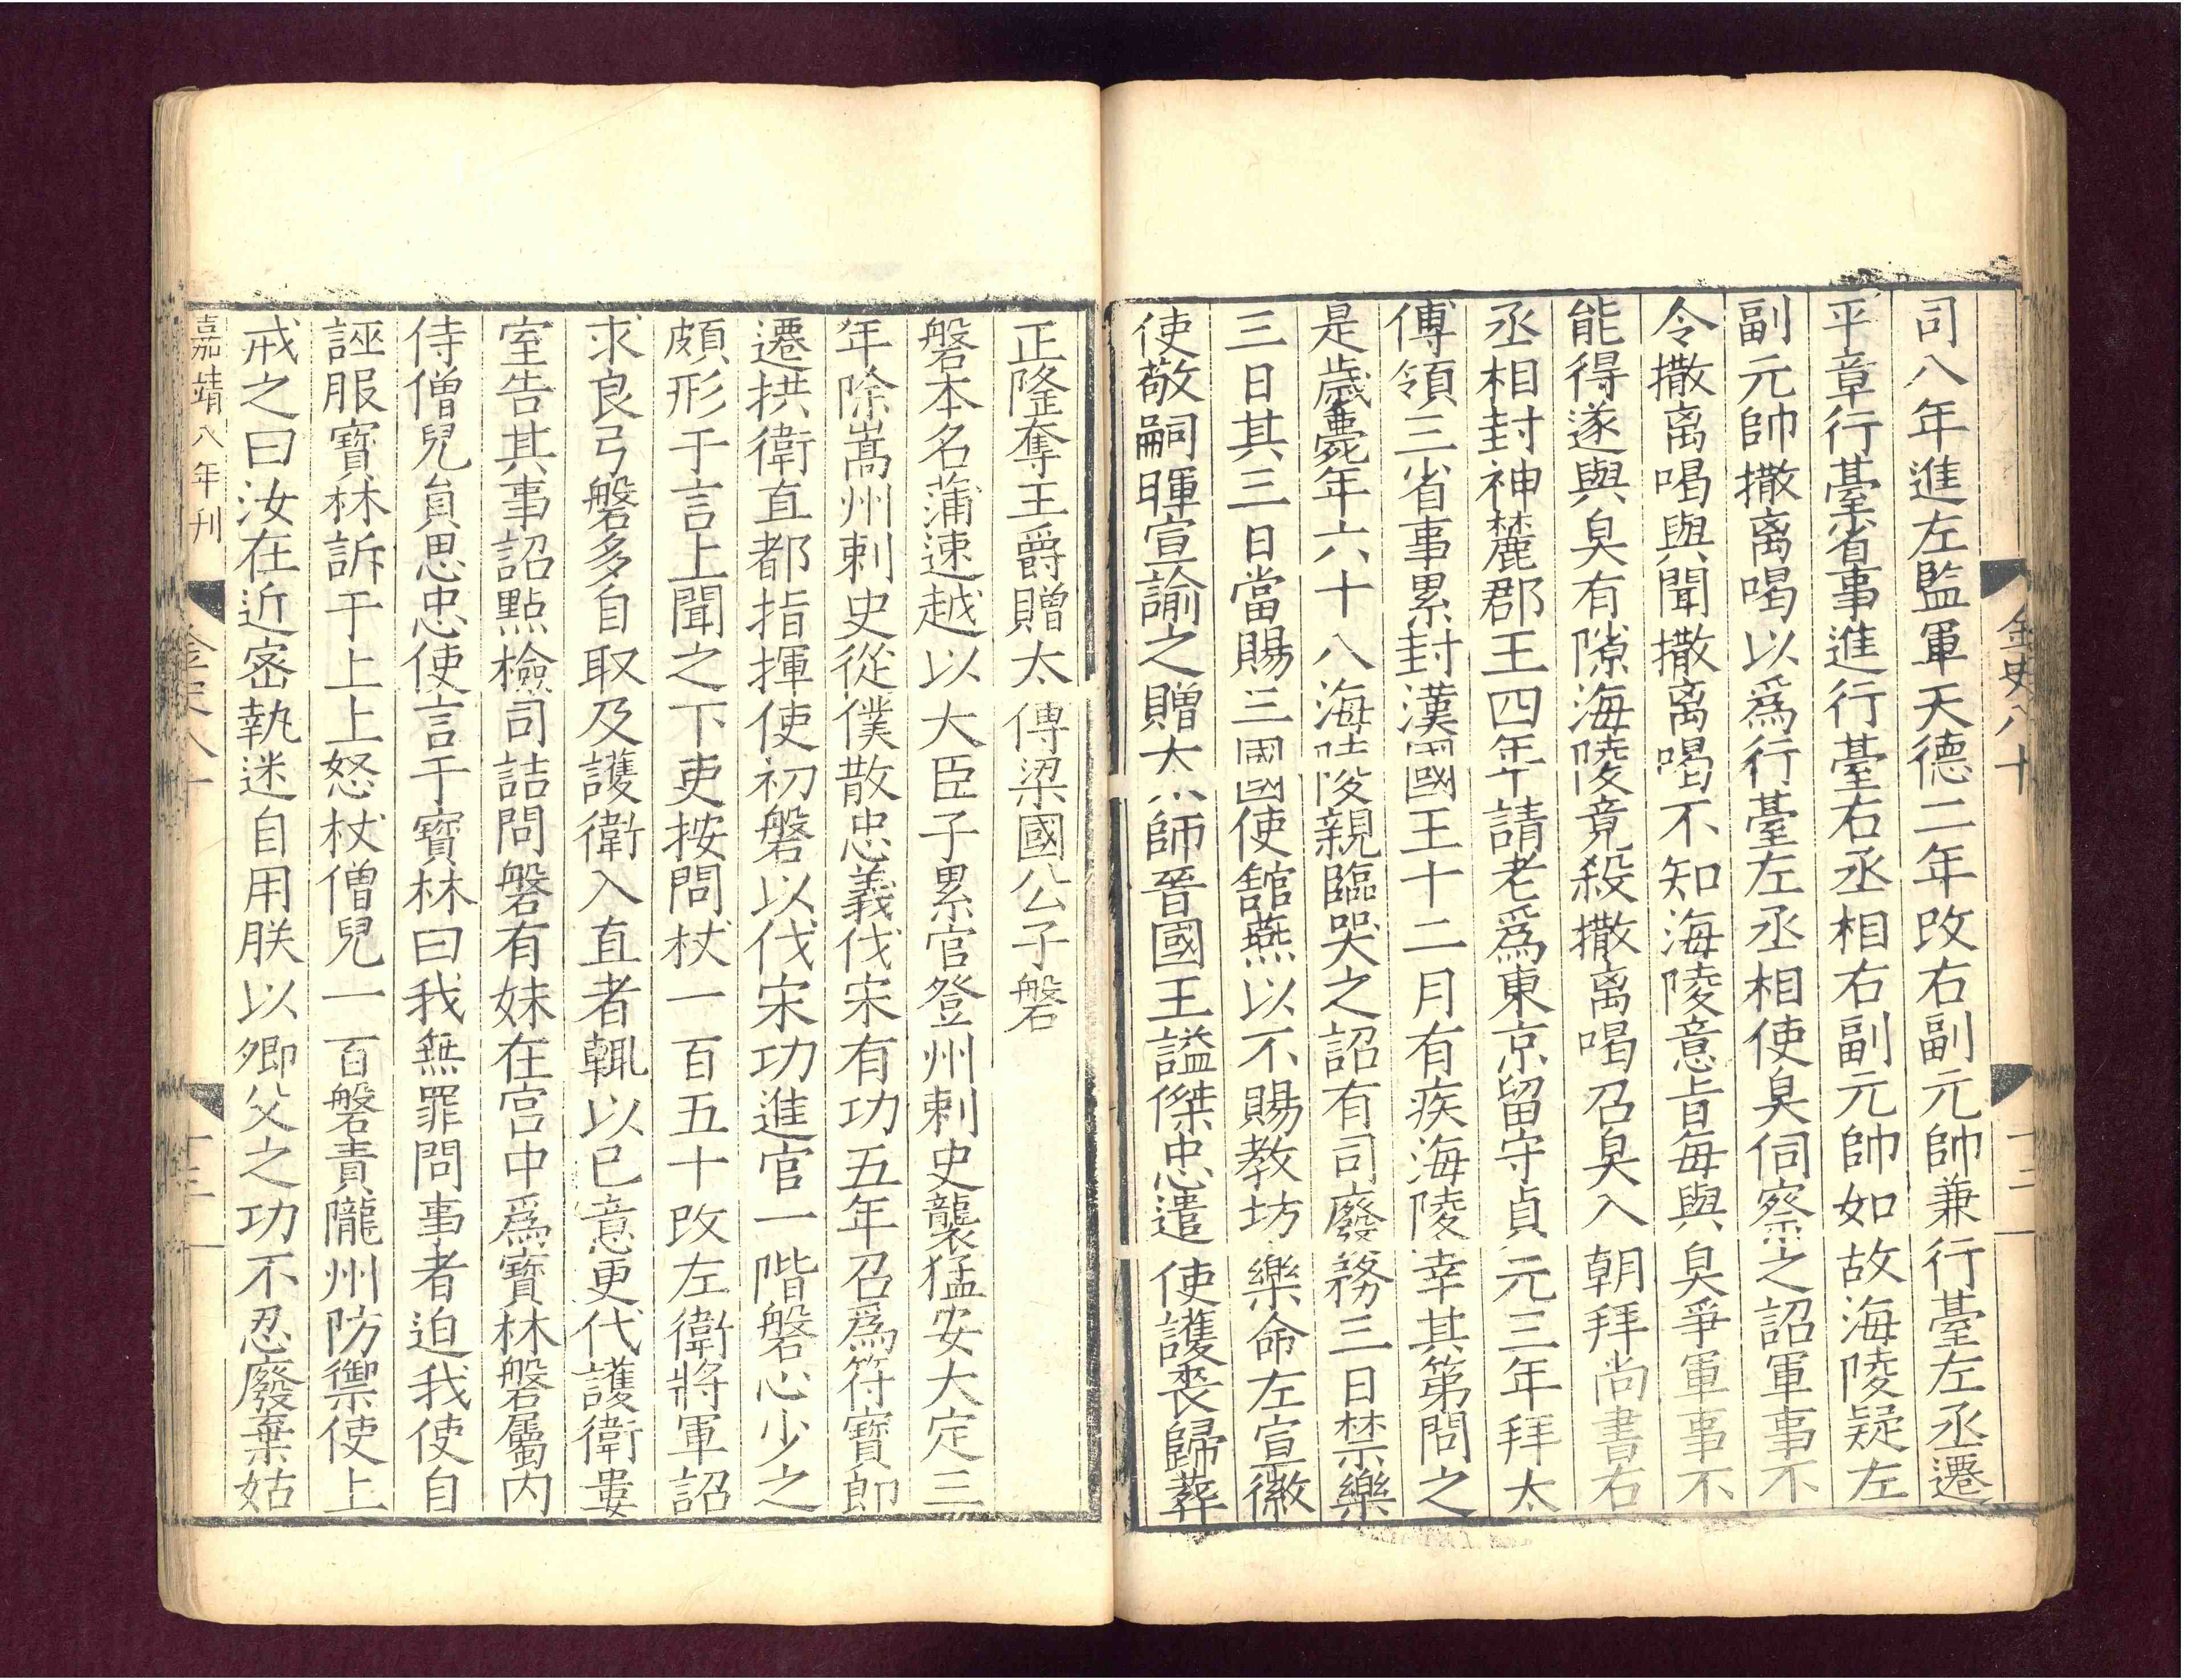 金史八十
十二
司八年進左監軍天德二年改右副元帥兼行臺左丞遷
平章行臺省事進行臺右丞相右副元帥如故海陵疑左
副元帥撒离喝以爲行臺左丞相使臭伺察之詔軍事不
令撒离喝與聞撒离喝不知海陵意旨每與臭爭軍事不
能得遂與臭有隙海陵竟殺撒离喝召臭入朝拜尚書右
丞相封神麓郡王四年請老爲東京留守貞元三年拜太
傅領三省事累封漢國王十二月有疾海陵幸其第問之
是歲薨年六十八海陵親臨哭之詔有司廢務三日禁樂
三日其三日當賜三國使館燕以不賜教坊樂命左宣徽
使敬嗣暉宣諭之贈太師晉國王謚傑忠遣使護喪歸葬
正隆奪王爵贈太傅梁國公子磐
磐本名蒲速越以大臣子累官登州刺史襲猛安大定三
年除嵩州刺史從僕散忠義伐宋有功五年召爲符寶郎
遷拱衛直都指揮使初磐以伐宋功進官一階磐心少之
頗形于言上聞之下吏按問杖一百五十改左衛將軍詔
求良弓磐多自取及護衛入直者輒以已意更代護衛婁
室告其事詔點檢司詰問磐有妹在宮中爲寶林磐屬内
侍僧兒員思忠使言于寶林曰我無罪問事者迫我使自
誣服寶林訴于上上怒杖僧兒一百磐責隴州防禦使上
戒之曰汝在近密執迷自用朕以卿父之功不忍廢棄姑
嘉靖八年刊
金史八十
十二